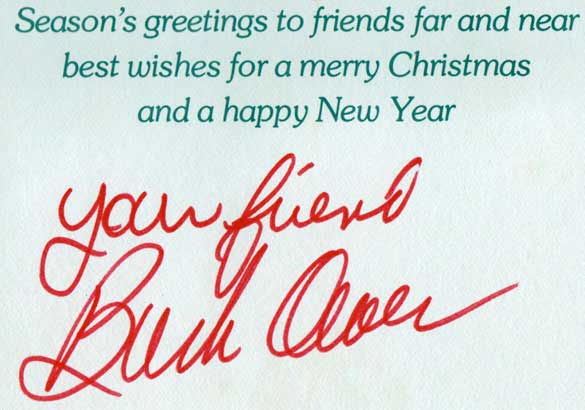 Season's greetings to friends far and near
best wishes for a merry Christmas
and a happy New Year
your friend
Buck Owens